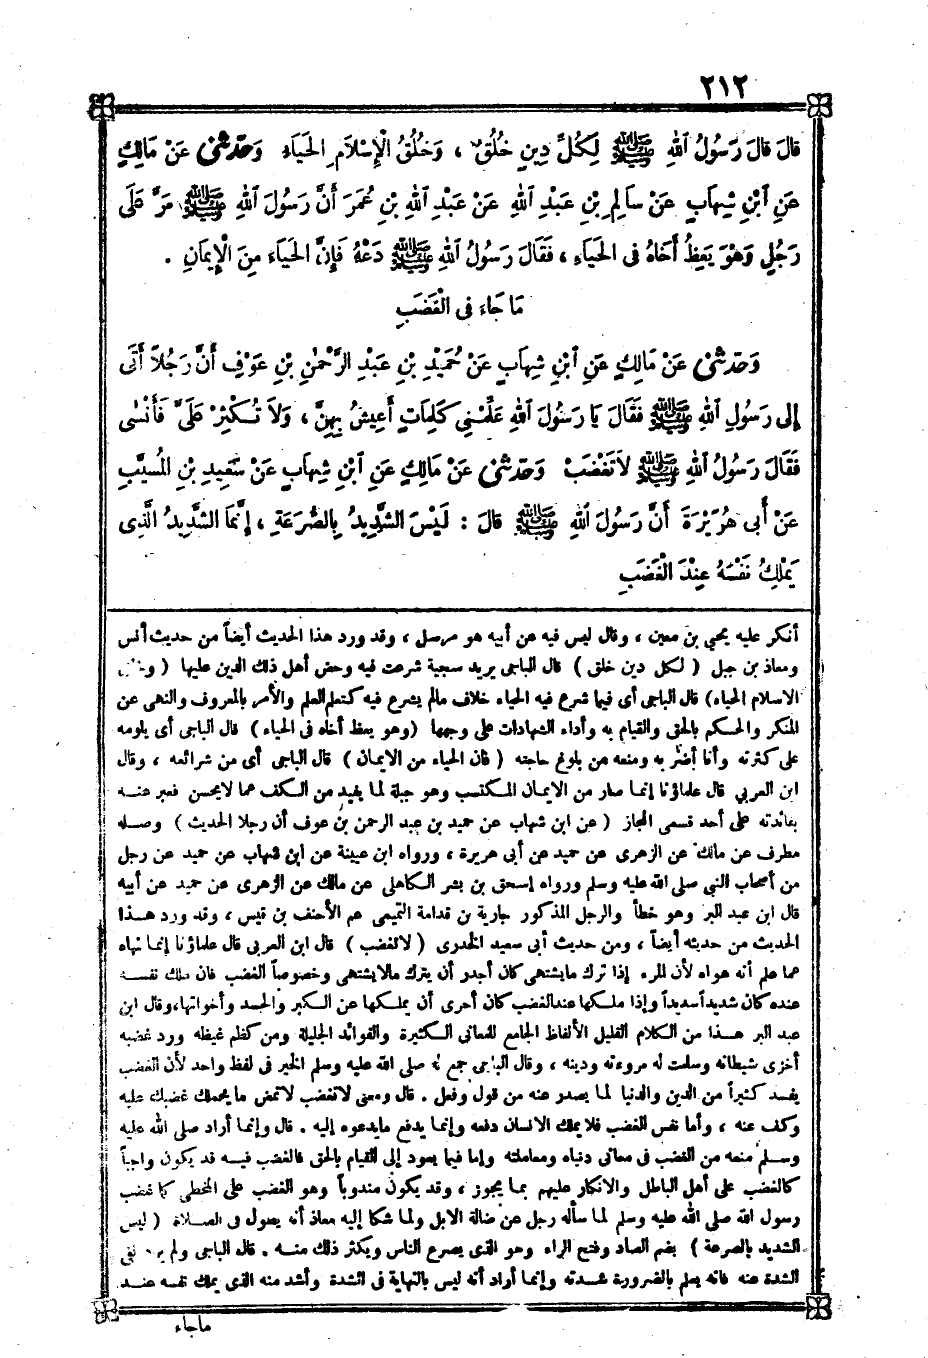 ٢١٢
قَالَ قَالَ رَسُولُ اللهِ ﷺ لِكُلِّ دِينٍ خُلُقٌ ، وَخُلُقُ الْإِسْلَامِ الْحَيَاءُ وَحَدَّثَنِي عَنْ مَالِكٍ
عَنِ ابْنِ شِهَابٍ عَنْ سَالِمِ بْنِ عَبْدِ اللهِ عَنْ عَبْدِ اللهِ بْنِ عُمَرَ أَنَّ رَسُولَ اللهِ ﷺ مَرَّ عَلَى
رَجُلٍ وَهُوَ يَعِظُ أَخَاهُ فِى الْحَيَاءِ ، فَقَالَ رَسُولُ اللهِ ﷺ دَعْهُ فَإِنَّ الْحَيَاءَ مِنَ الْإِيمَانِ .
مَا جَاءَ فِى الْغَضَبِ
وَحَدَّثَنِي عَنْ مَالِكٍ عَنِ ابْنِ شِهَابٍ عَنْ حُمَيْدِ بْنِ عَبْدِ الرَّحْمٰنِ بْنِ عَوْفٍ أَنَّ رَجُلاً أَتَى
إِلَى رَسُولِ اللهِ ﷺ فَقَالَ يَا رَسُولَ اللهِ عَلِّمْنِي كَلِمَاتٍ أَعِيشُ بِهِنَّ ، وَلَا تُكْثِرْ عَلَيَّ فَأَنْسَى
فَقَالَ رَسُولُ اللهِ ﷺ لَا تَغْضَبْ وَحَدَّثَنِي عَنْ مَالِكٍ عَنِ ابْنِ شِهَابٍ عَنْ سَعِيدِ بْنِ الْمُسَيَّبِ
عَنْ أَبِى هُرَيْرَةَ أَنَّ رَسُولَ اللهِ ﷺ قَالَ : لَيْسَ الشَّدِيدُ بِالصُّرَعَةِ ، إِنَّمَا الشَّدِيدُ الَّذِى
يَمْلِكُ نَفْسَهُ عِنْدَ الْغَضَبِ
أنكر عليه يحيى بن معين ، وقال ليس فيه عن أبيه هو مرسل ، وقد ورد هذا الحديث أيضاً من حديث أنس
ومعاذ بن جبل ( لكل دين خلق ) قال الباجى يريد سجية شرعت فيه وحض أهل ذلك الدين عليها ( وخلق
الاسلام الحياء ) قال الباجى أى فيما شرع فيه الحياء خلاف مالم يشرع فيه كتعلم العلم والأمر بالمعروف والنهى عن
المنكر والحكم بالحق والقيام به وأداء الشهادات على وجهها (وهو يعظ أخاه فى الحياء ) قال الباجى أى يلومه
على كثرته وأنا أضر به ومنعه من بلوغ حاجته ( فان الحياء من الايمان ) قال الباجى أى من شرائعه ، وقال
ابن العربي قال علماؤنا إنما صار من الايمان المكتسب وهو جبلة لما يفيد من الكف عما لا يحسن فعبر عنه
بفائدته على أحد قسمى المجاز ( عن ابن شهاب عن حميد بن عبد الرحمن بن عوف أن رجلا الحديث ) وصله
مطرف عن مالك عن الزهرى عن حميد عن أبى هريرة ، ورواه ابن عيينة عن ابن شهاب عن حميد عن رجل
من أصحاب النبي صلى الله عليه وسلم ورواه إسحق بن بشر الكاهلى عن مالك عن الزهرى عن حميد عن أبيه
قال ابن عبد البر وهو خطأ والرجل المذكور جارية بن قدامة التميمى عم الأحنف بن قيس ، وقد ورد هذا
الحديث من حديثه أيضاً ، ومن حديث أبى سعيد الخدرى ( لاتغضب ) قال ابن العربى قال علماؤنا إنما نهاه
عما علم أنه هواه لأن المرء إذا ترك مايشتهى كان أجدر أن يترك مالايشتهى وخصوصاً الغضب فان ملك نفسه
عنده كان شديداً سديداً وإذا ملكها عندالغضب كان أحرى أن يملكها عن الكبر والحسد وأخواتها،وقال ابن
عبد البر هذا من الكلام القليل الألفاظ الجامع للمعانى الكثيرة والفوائد الجليلة ومن كظم غيظه ورد غضبه
أخزى شيطانه وسلمت له مروءته ودينه ، وقال الباجى جمع له صلى الله عليه وسلم الخير فى لفظ واحد لأن الغضب
يفسد كثيراً من الدين والدنيا لما يصدر عنه من قول وفعل . قال ومعنى لاتغضب لاتمض مايحملك غضبك عليه
وكف عنه ، وأما نفس الغضب فلا يملك الانسان دفعه وإنما يدفع مايدعوه إليه . قال وإنما أراد صلى الله عليه
وسلم منعه من الغضب فى معانى دنياه ومعاملته وإما فيما يعود إلى القيام بالحق فالغضب فيه قد يكون واجباً
كالغضب على أهل الباطل والانكار عليهم بما يجوز ، وقد يكون مندوباً وهو الغضب على المخطى كما غضب
رسول الله صلى الله عليه وسلم لما سأله رجل عن ضالة الابل ولما شكا إليه معاذ أنه يطول فى الصلاة ( ليس
الشديد بالصرعة ) بضم الصاد وفتح الراء وهو الذى يصرع الناس ويكثر ذلك منه . قال الباجى ولم يرد نفى
الشدة عنه فانه يعلم بالضرورة شدته وإنما أراد أنه ليس بالنهاية فى الشدة وأشد منه الذى يملك نفسه عند
ماجاء